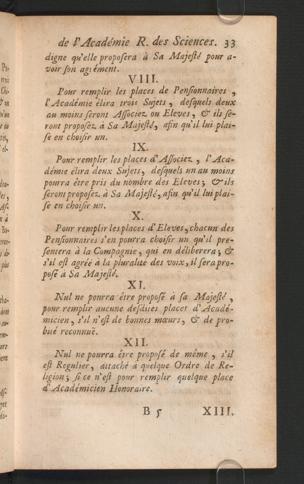 de l'Académie R. des Sciences. 33
digne qu'elle proposera à Sa Majesté pour a-
voir son agrément.
VIII.
Pour remplir les places de Pensionnaires,
l'Académie élira trois Sujets, desquels deux
au moins seront Associez ou Eleves, & ils se-
ront proposez à Sa Majesté, afin qu'il lui plai-
se en choisir un.
IX.
Pour remplir les places d'Associez, l'Aca-
démie élira deux Sujets, desquels un au moins
pourra être pris du nombre des Eleves; & ils
seront proposez à Sa Majesté, afin qu'il lui plai-
se en choisir un.
X.
Pour remplir les places d'Eleves, chacun des
Pensionnaires s'en pourra choisir un qu'il pre-
sentera à la Compagnie, qui en déliberera; &
s'il est agréé à la pluralité des voix, il sera pro-
posé à Sa Majesté.
XI.
Nul ne pourra être proposé à sa Majesté,
pour remplir aucune desdites places d'Acadé-
micien, s'il n'est de bonnes mœurs, & de pro-
bité reconnuë.
XII.
Nul ne pourra être proposé de même, s'il
est Regulier, attaché à quelque Ordre de Re-
ligion; si ce n'est pour remplir quelque place
d'Académicien Honoraire.
B 5 XIII.